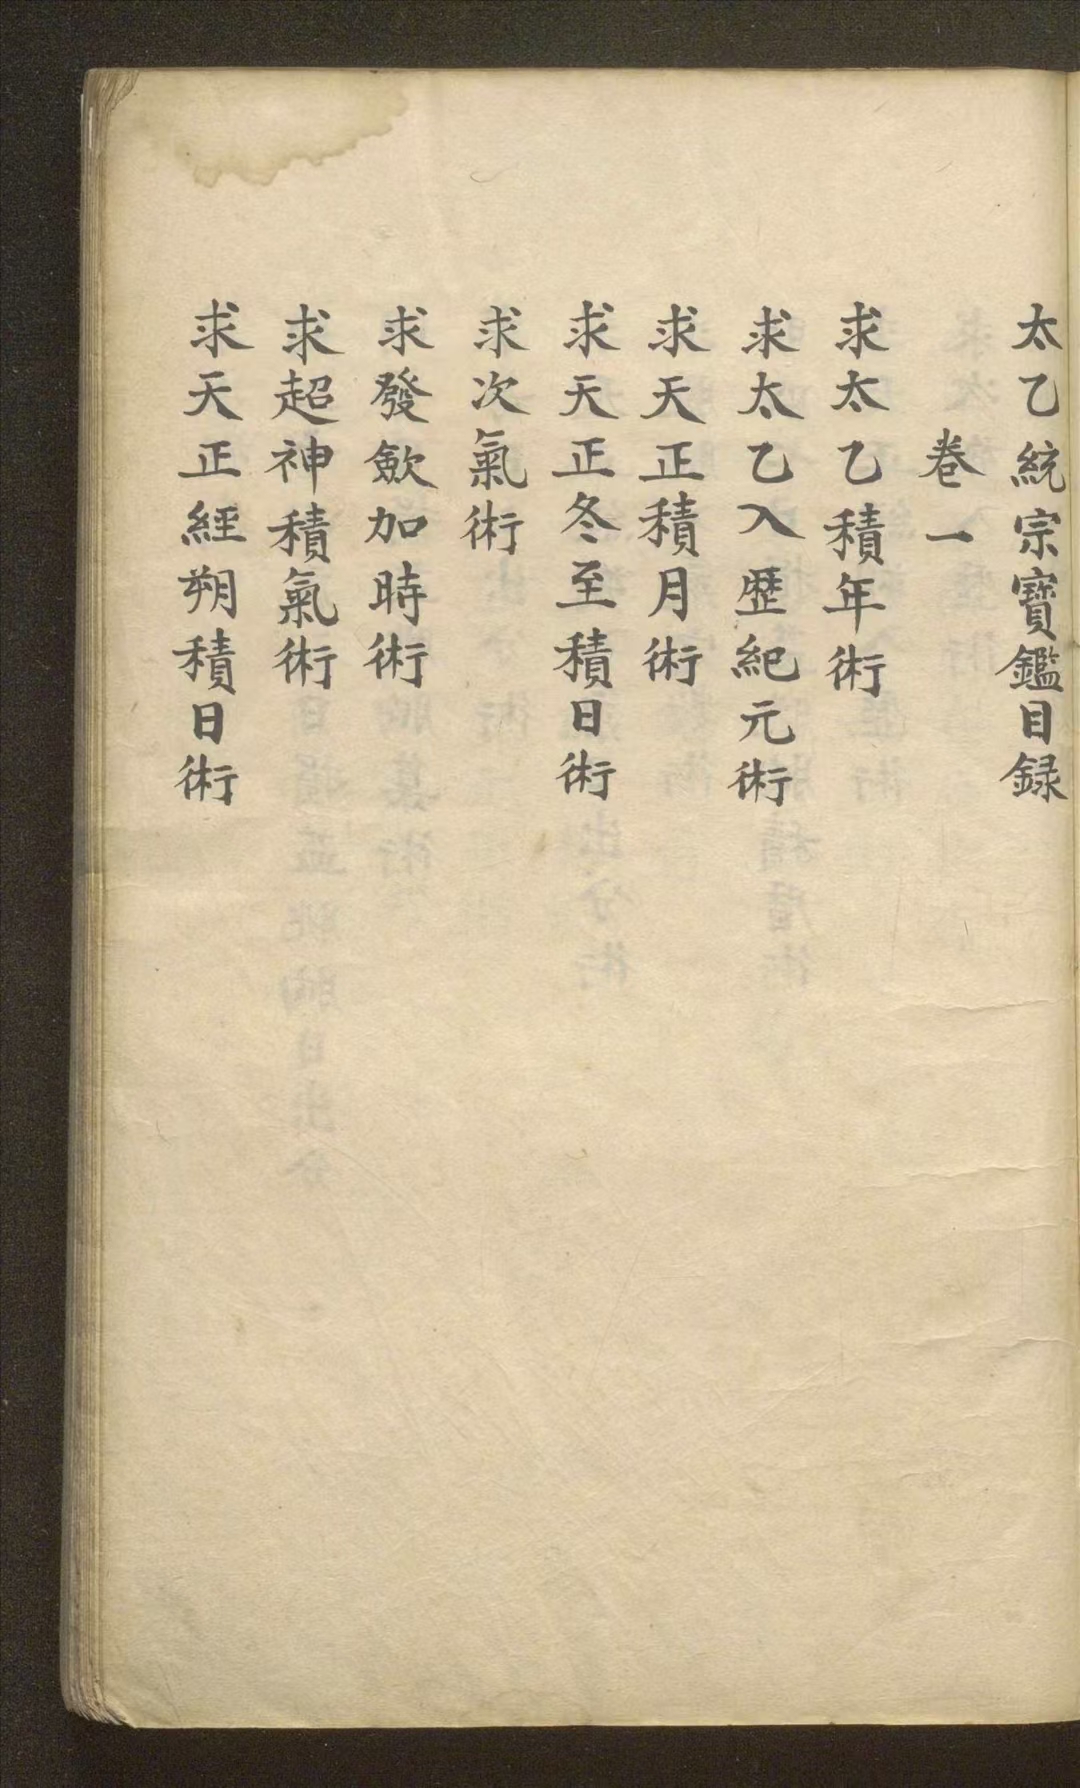 太乙統宗寶鑑目録
卷一
求太乙積年術
求太乙入歷紀元術
求天正積月術
求天正冬至積日術
求次氣術
求發歛加時術
求超神積氣術
求天正經朔積日術